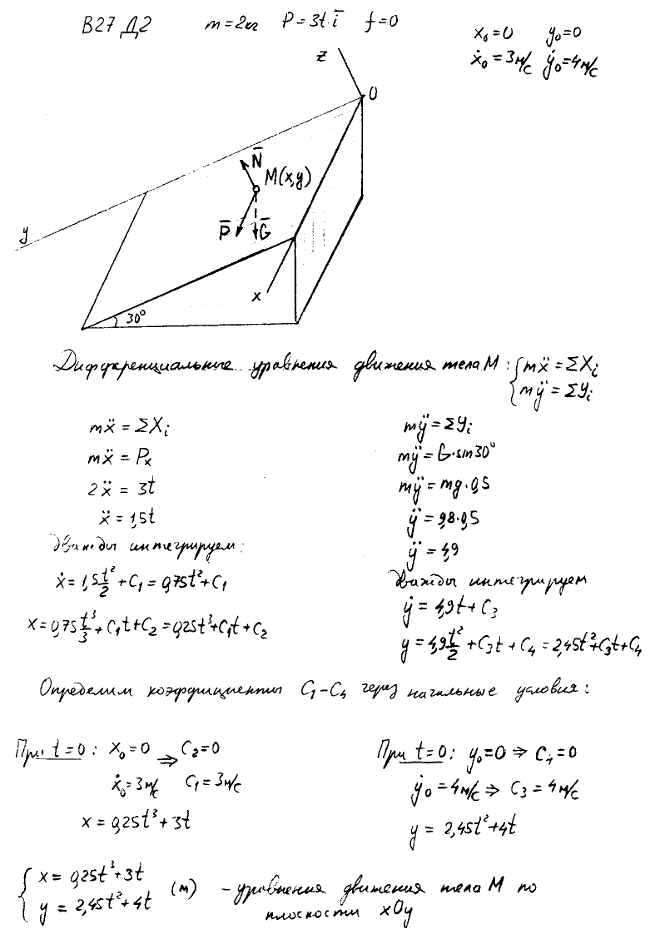 В27 Д2 m=2кг P̄=3t·ī f=0
x₀=0 y₀=0
ẋ₀=3м/с ẏ₀=4м/с
z
O
N̄
M(x,y)
P̄ Ḡ
y
x
30°
Дифференциальные уравнения движения тела М: { mẍ = ΣXᵢ
mÿ = ΣYᵢ
mẍ = ΣXᵢ
mẍ = Pₓ
2ẍ = 3t
ẍ = 1,5t
дважды интегрируем:
ẋ = 1,5 t²/2 + C₁ = 0,75t² + C₁
x = 0,75 t³/3 + C₁t + C₂ = 0,25t³ + C₁t + C₂
mÿ = ΣYᵢ
mÿ = G·sin30°
mÿ = mg·0,5
ÿ = 9,8·0,5
ÿ = 4,9
дважды интегрируем
ẏ = 4,9t + C₃
y = 4,9 t²/2 + C₃t + C₄ = 2,45t² + C₃t + C₄
Определим коэффициенты C₁–C₄ через начальные условия:
При t=0: x₀=0 ⇒ C₂=0
ẋ₀=3м/с C₁=3м/с
x = 0,25t³+3t
При t=0: y₀=0 ⇒ C₄=0
ẏ₀=4м/с ⇒ C₃=4м/с
y = 2,45t²+4t
{ x = 0,25t³+3t
y = 2,45t²+4t (м) – уравнения движения тела М по
плоскости xOy